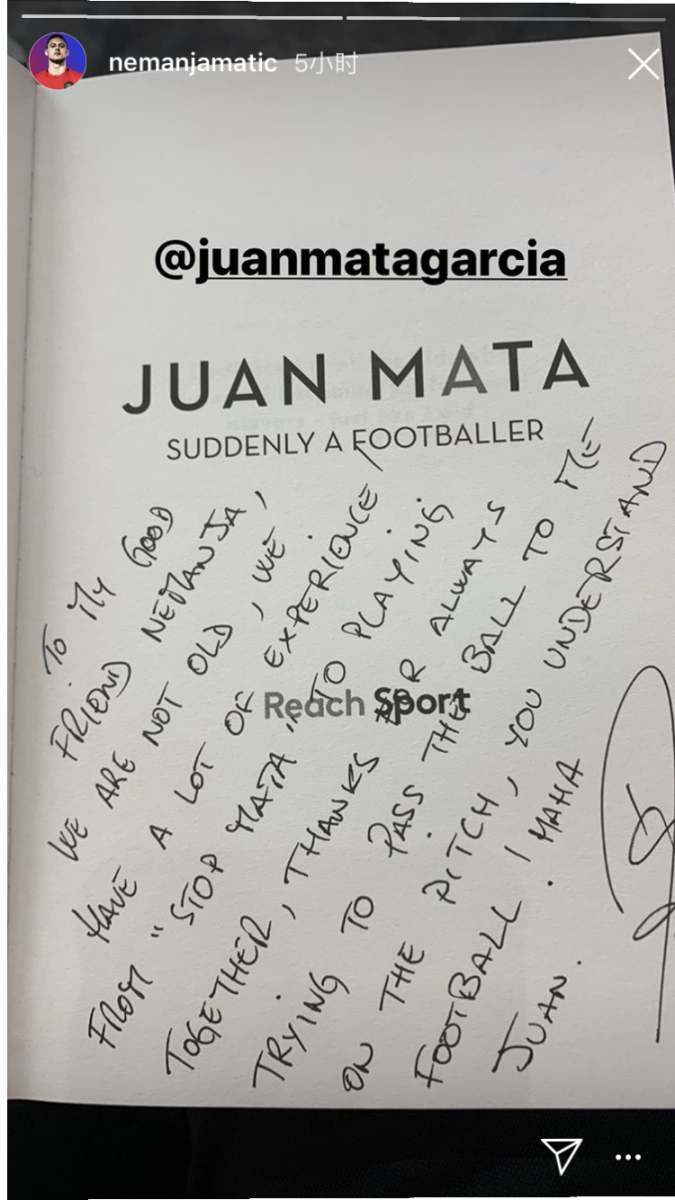 nemanjamatic 5小时
@juanmatagarcia
JUAN MATA
SUDDENLY A FOOTBALLER
TO MY GOOD
FRIEND NEMANJA,
WE ARE NOT OLD, WE
HAVE A LOT OF EXPERIENCE!
FROM "STOP MATA" TO PLAYING
TOGETHER, THANKS FOR ALWAYS
TRYING TO PASS THE BALL TO ME
ON THE PITCH, YOU UNDERSTAND
FOOTBALL! HAHA.
JUAN.
Reach Sport